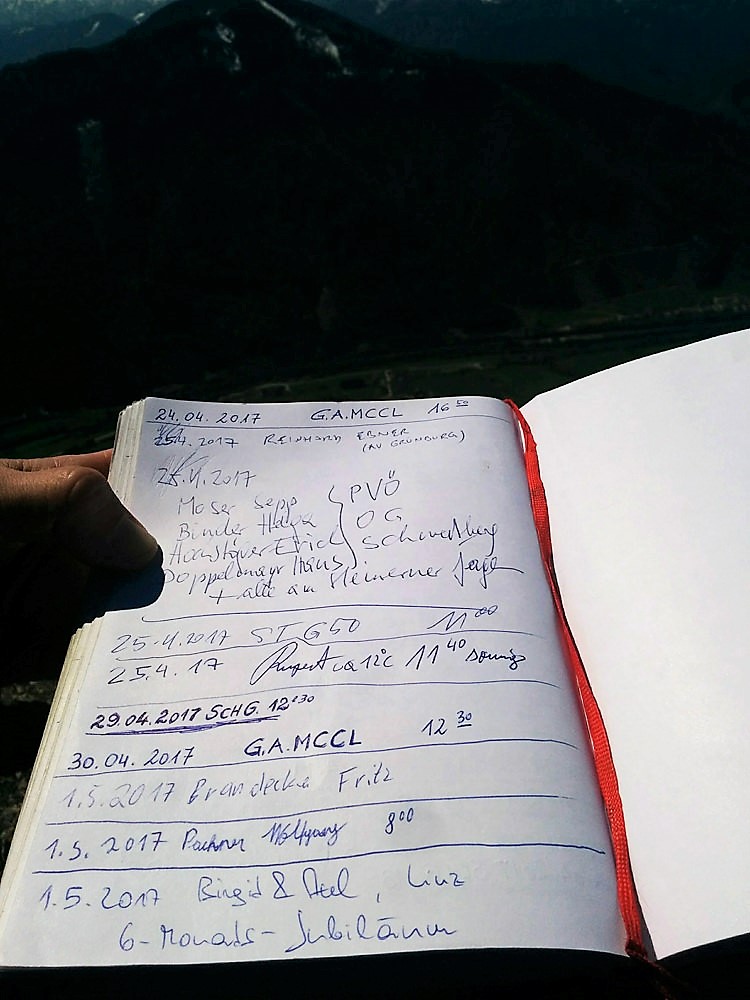 24.04.2017 G.A.MCCL 16 50
25.4.2017 REINHARD EBNER
(AV GRÜNBURG)
25.4.2017
Moser Sepp PVÖ
Binder OG
Erich
Doppelmayr Hans
+ alle am steinerner Jager
25.4.2017 STG50 11 00
25.4.17 Rupert ca 12°C 11 40 sonnig
29.04.2017 SCHG. 12:30
30.04.2017 G.A.MCCL 12 30
1.5.2017 Brandecker Fritz
1.5.2017 Wolfgang 8 00
1.5.2017 Birgid & , Linz
6-Monats-Jubiläum